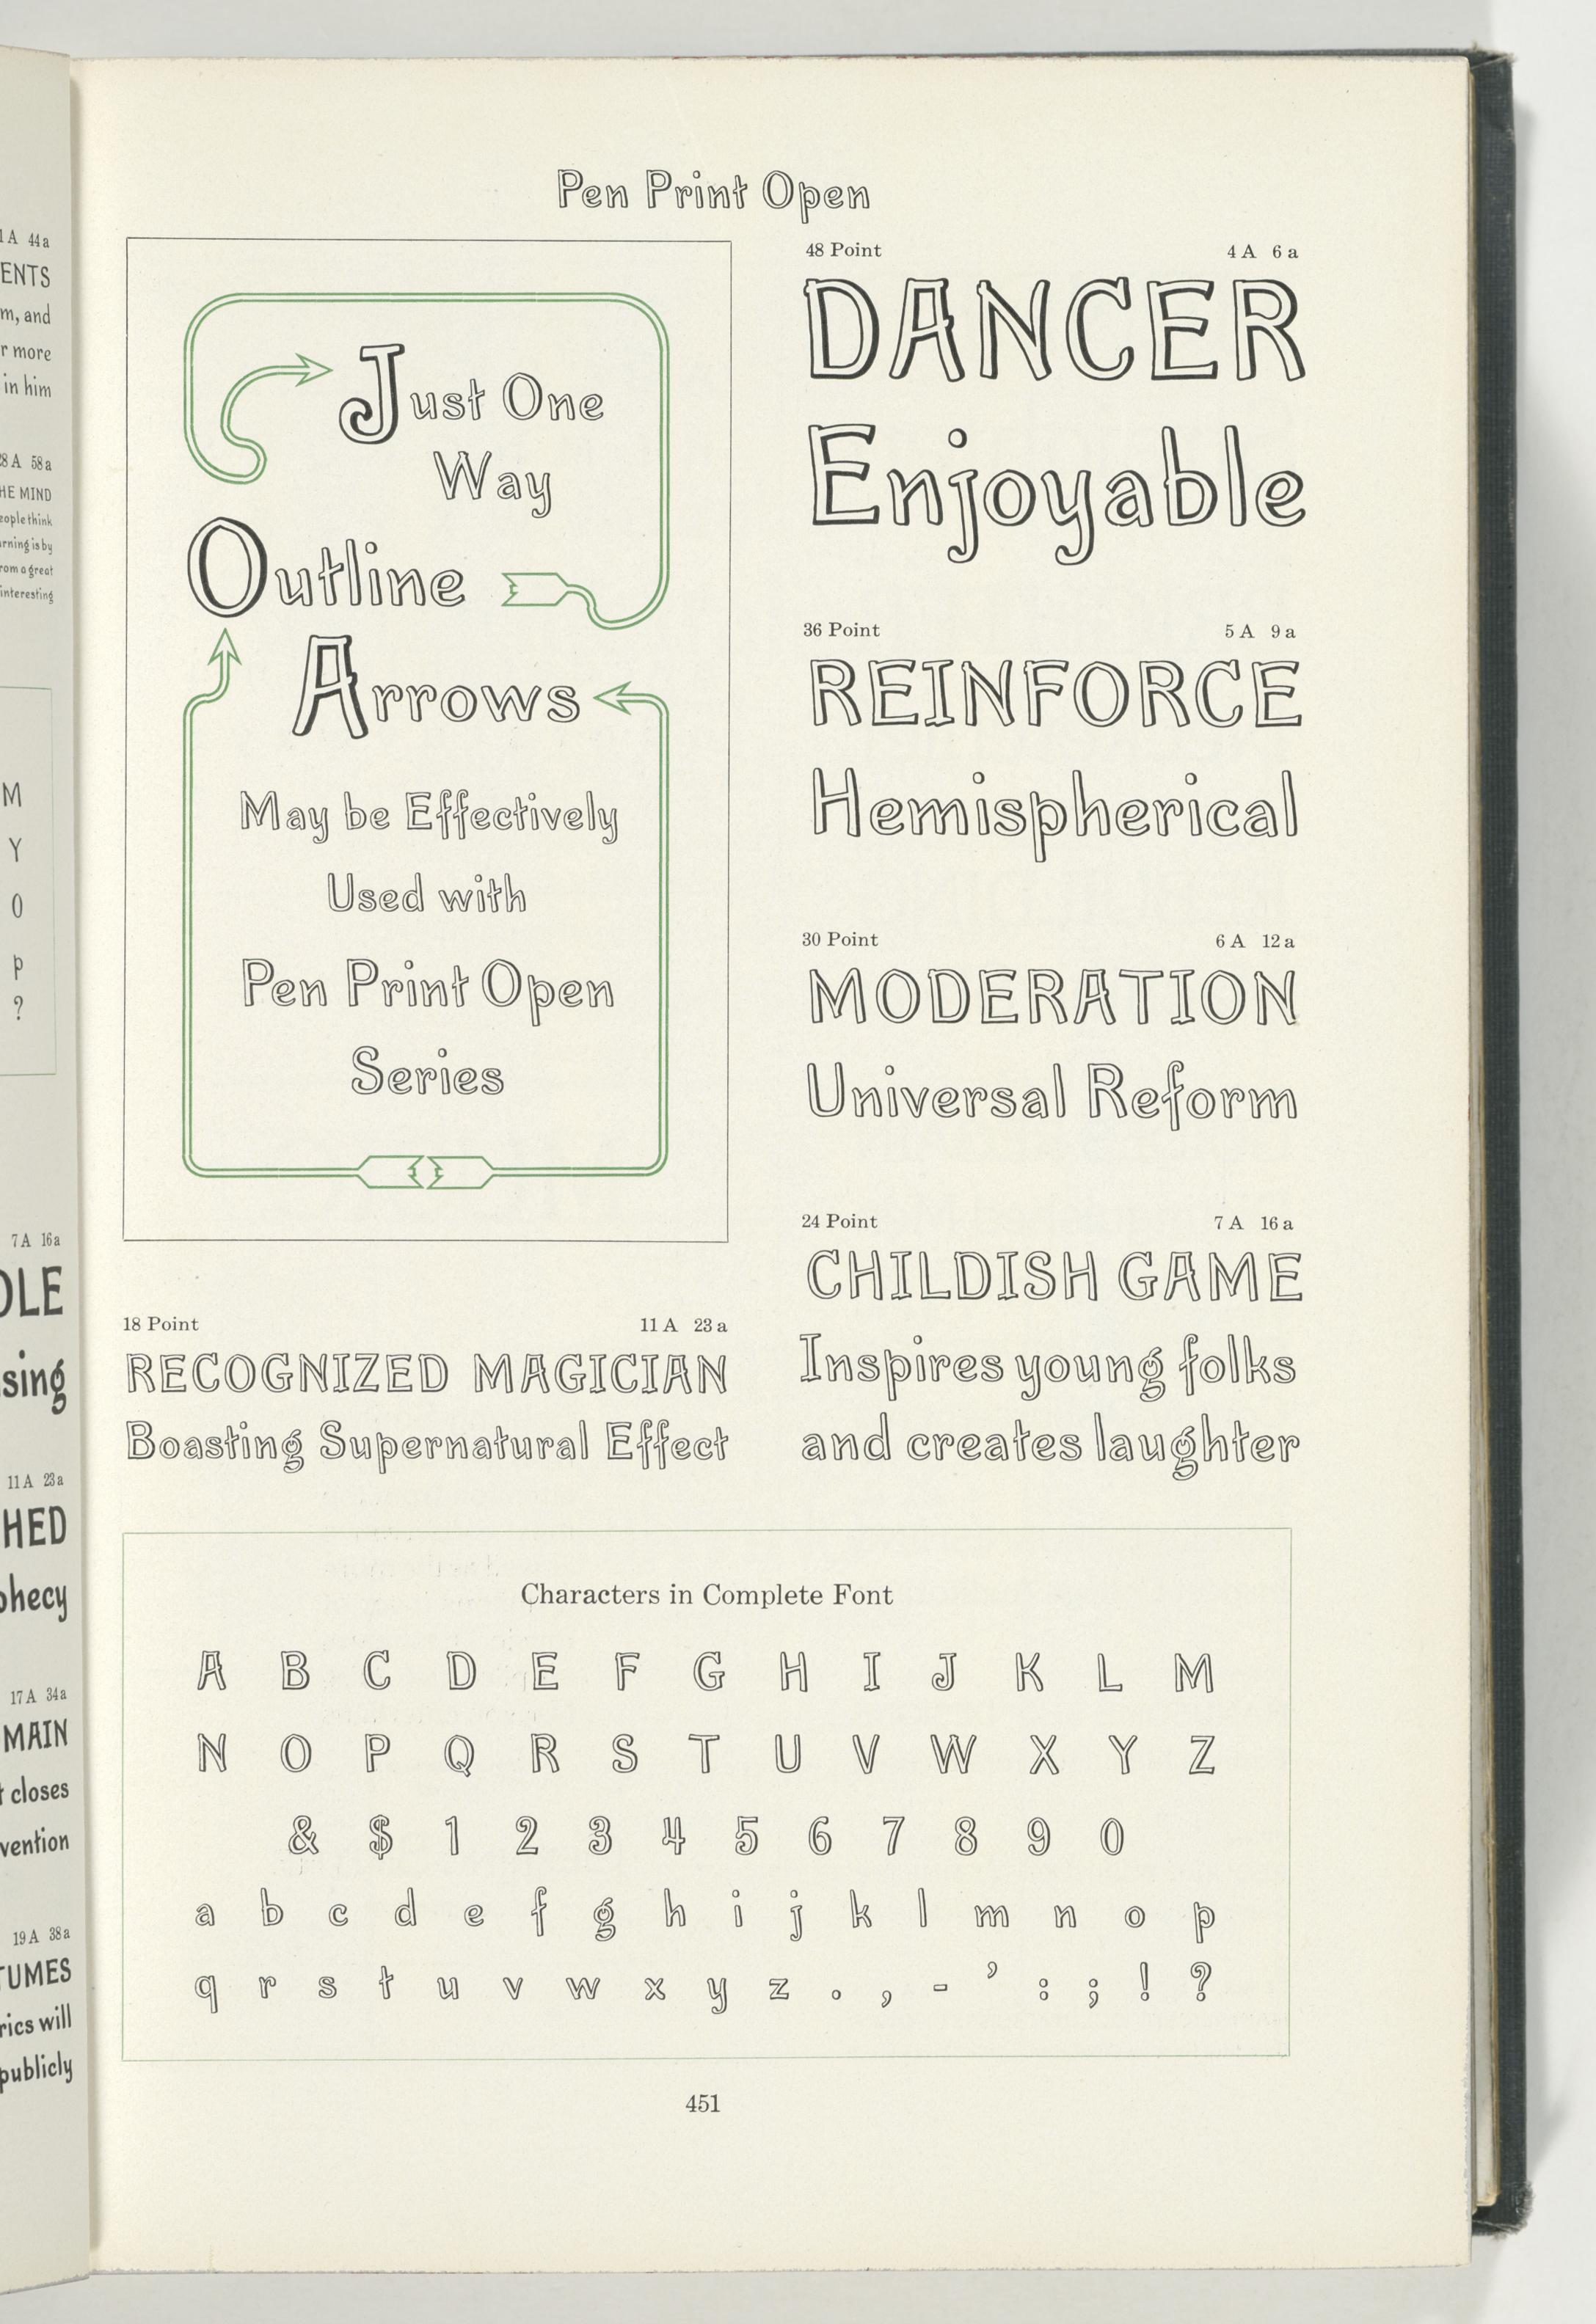 1A 44a
ENTS
m, and
r more
in him
28A 58a
HE MIND
eople think
arning is by
rom a great
interesting
M
Y
O
p
?
7A 16a
DLE
sing
11A 23a
HED
phecy
17A 34a
MAIN
t closes
vention
19A 38a
TUMES
rics will
publicly
Pen Print Open
Just One
Way
Outline
Arrows
May be Effectively
Used with
Pen Print Open
Series
48 Point 4 A 6 a
DANCER
Enjoyable
36 Point 5 A 9 a
REINFORCE
Hemispherical
30 Point 6 A 12 a
MODERATION
Universal Reform
24 Point 7 A 16 a
CHILDISH GAME
Inspires young folks
and creates laughter
18 Point 11 A 23 a
RECOGNIZED MAGICIAN
Boasting Supernatural Effect
Characters in Complete Font
A B C D E F G H I J K L M
N O P Q R S T U V W X Y Z
& $ 1 2 3 4 5 6 7 8 9 0
a b c d e f g h i j k l m n o p
q r s t u v w x y z . , - ’ : ; ! ?
451